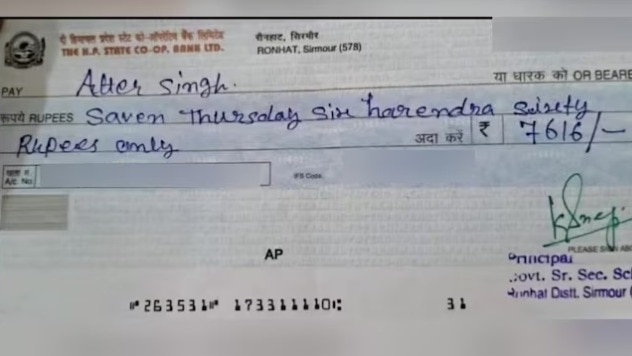 दी हिमाचल प्रदेश स्टेट को-ऑपरेटिव बैंक लिमिटेड
THE H.P. STATE CO-OP. BANK LTD.
रौनहाट, सिरमौर
RONHAT, Sirmour (578)
PAY Atter Singh. या धारक को OR BEARE
रूपये RUPEES Saven Thursday Six harendra Sixety
Rupees only अदा करें ₹ 7616/-
खाता सं.
A/c. No.
IFS Code
PLEASE SIGN AB
AP
Principal
Govt. Sr. Sec. Sc
Ronhat Distt. Sirmour (
⑈263531⑈ 173311110⑆ 31